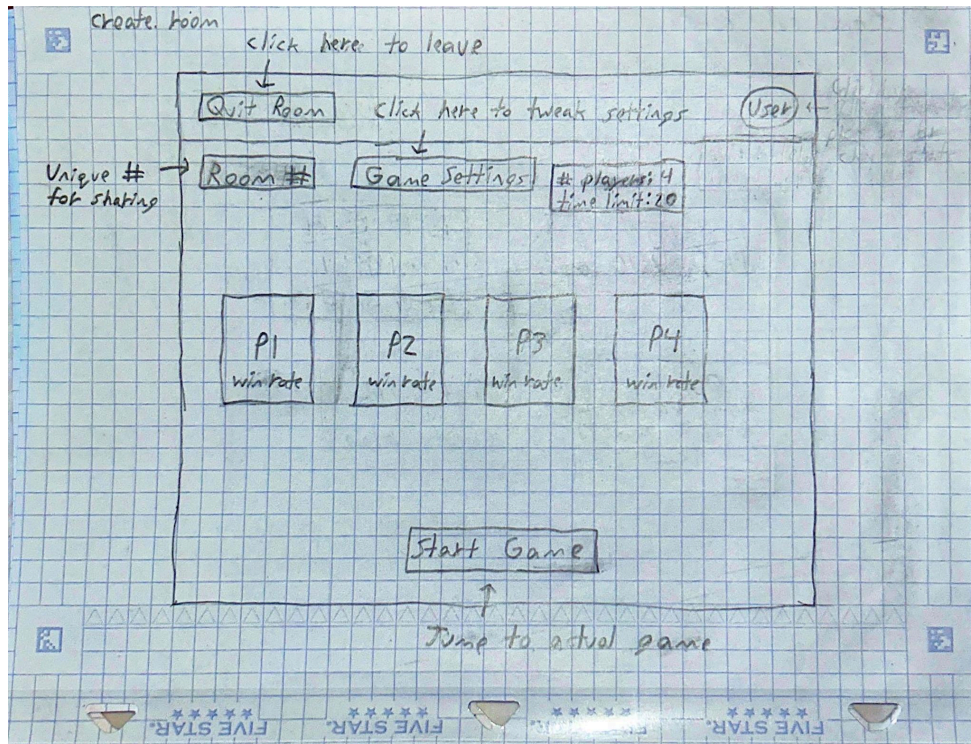 create room
click here to leave
Quit Room
click here to tweak settings
User
Unique #
for sharing
Room #
Game Settings
# players: 4
time limit: 20
P1
win rate
P2
win rate
P3
win rate
P4
win rate
Start Game
Jump to actual game
FIVE STAR.
FIVE STAR.
FIVE STAR.
FIVE STAR.